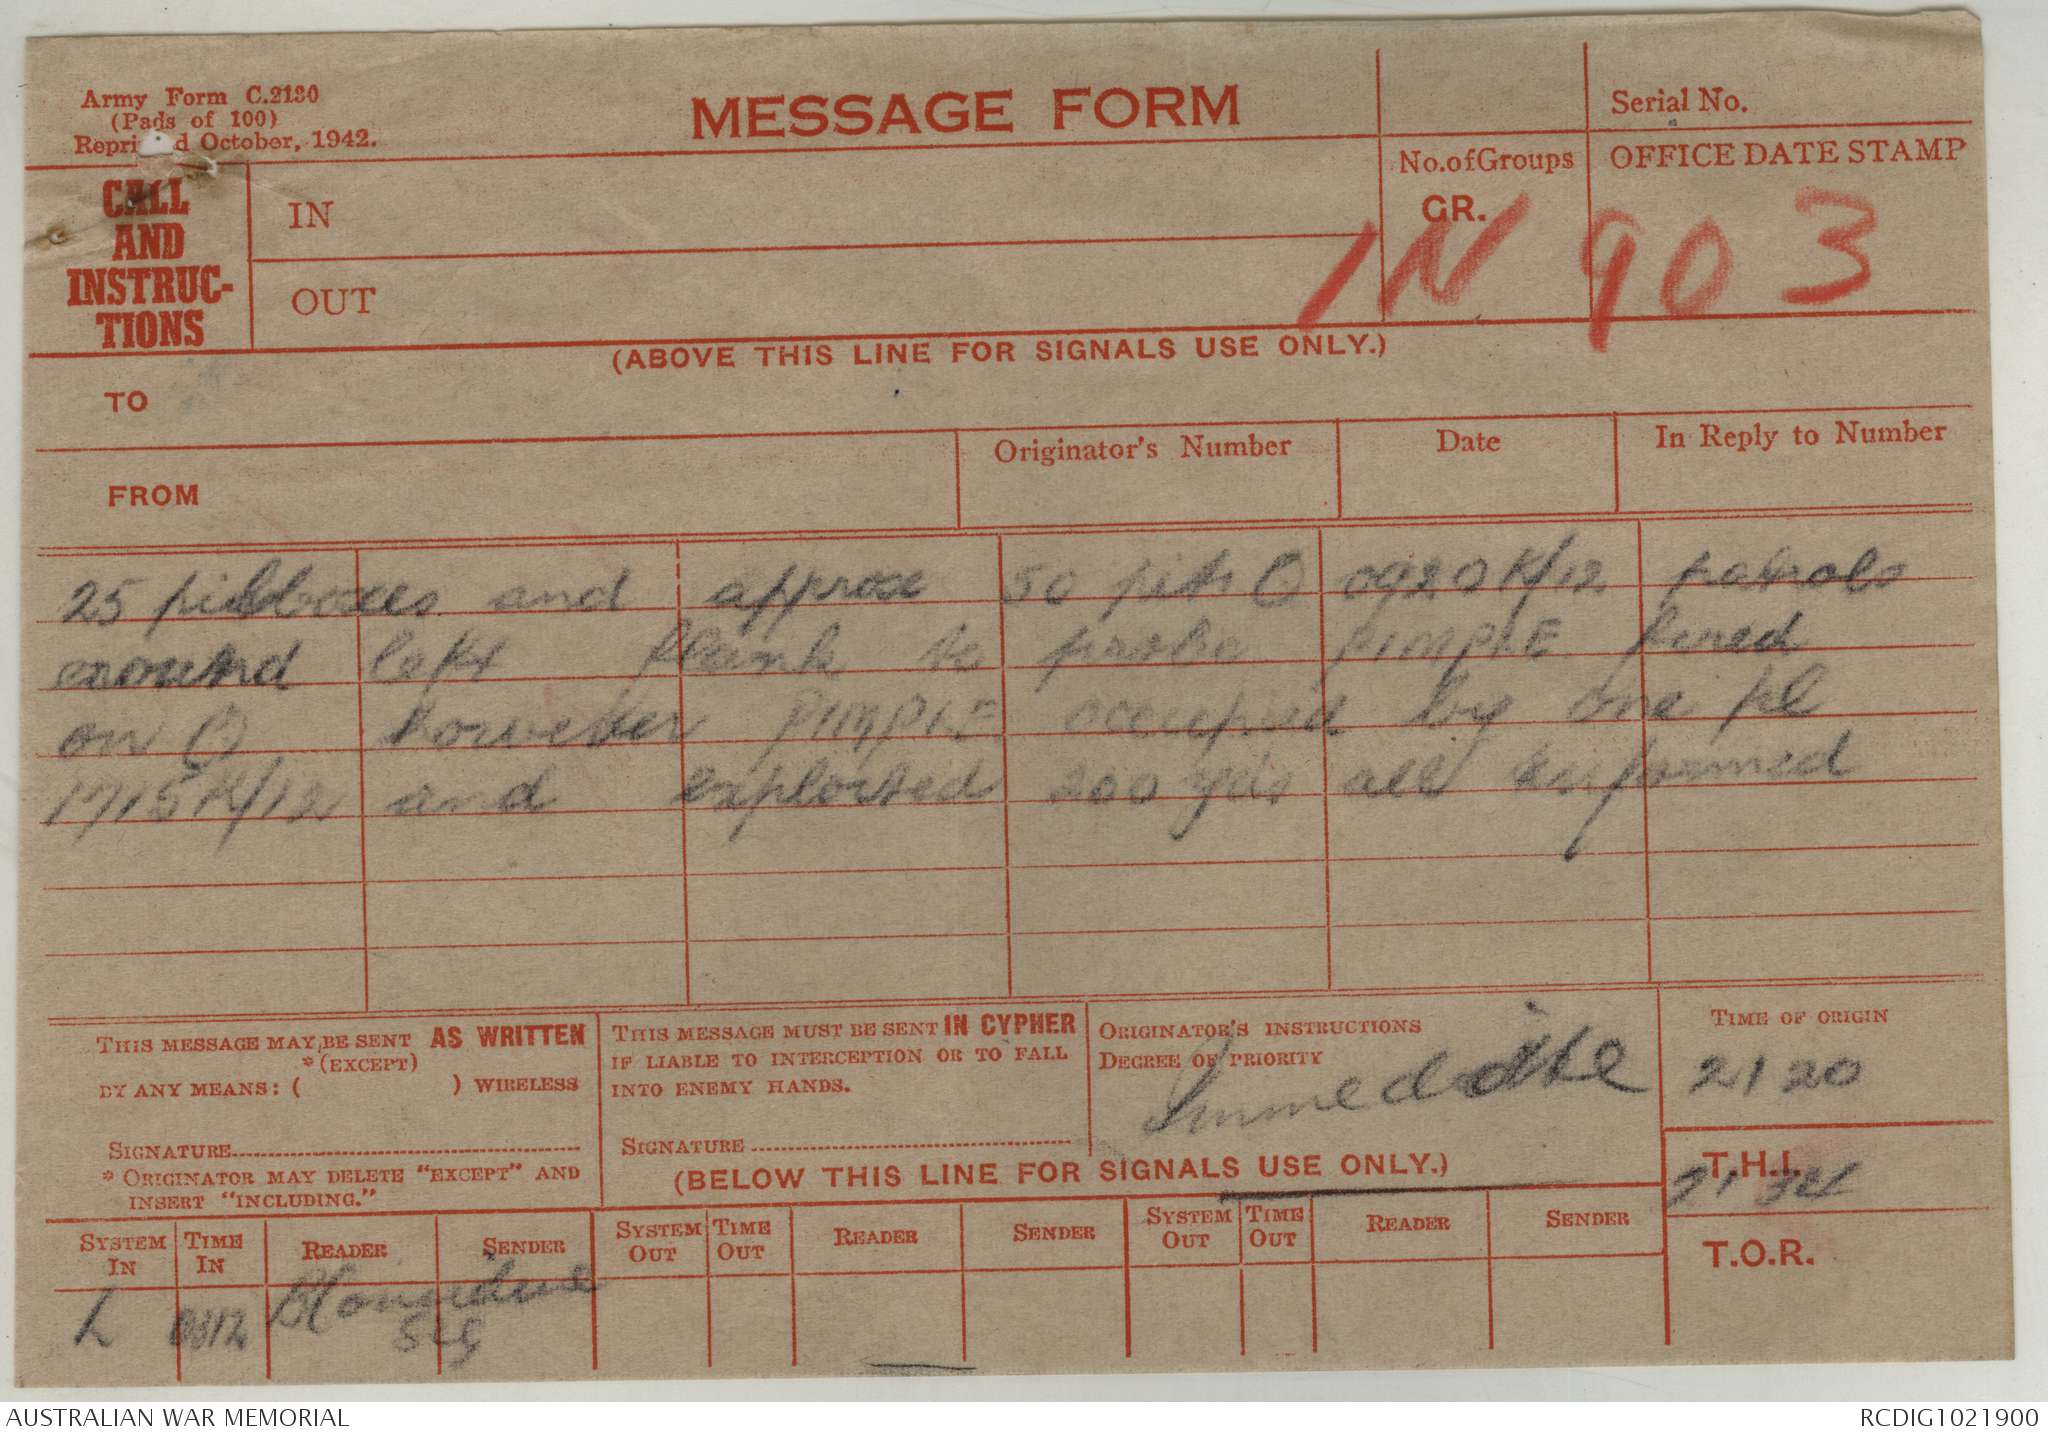 Army Form C.2130
(Pads of 100)
Repri d October, 1942.
MESSAGE FORM
Serial No.
No. of Groups
GR.
OFFICE DATE STAMP
IN 903
CALL
AND
INSTRUC-
TIONS
IN
OUT
(ABOVE THIS LINE FOR SIGNALS USE ONLY.)
TO
FROM
Originator's Number
Date
In Reply to Number
25 pillboxes and approx 50 pits O 0920K/12 patrols
around left flank to probe PIMPLE fired
on O however PIMPLE occupied by one pl
1715K/12 and exploited 200 yds all informed
THIS MESSAGE MAY BE SENT AS WRITTEN
*(EXCEPT)
BY ANY MEANS: ( ) WIRELESS
SIGNATURE
* ORIGINATOR MAY DELETE "EXCEPT" AND
INSERT "INCLUDING."
THIS MESSAGE MUST BE SENT IN CYPHER
IF LIABLE TO INTERCEPTION OR TO FALL
INTO ENEMY HANDS.
SIGNATURE
ORIGINATOR'S INSTRUCTIONS
DEGREE OF PRIORITY
Immediate
TIME OF ORIGIN
2120
(BELOW THIS LINE FOR SIGNALS USE ONLY.)
T.H.I.
T.O.R.
SYSTEM IN
TIME IN
READER
SENDER
SYSTEM OUT
TIME OUT
READER
SENDER
SYSTEM OUT
TIME OUT
READER
SENDER
L
SIG
AUSTRALIAN WAR MEMORIAL
RCDIG1021900